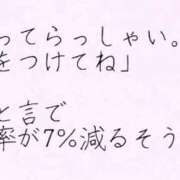 ってらっしゃい。
をつけてね」
と言で
率が7%減るそう